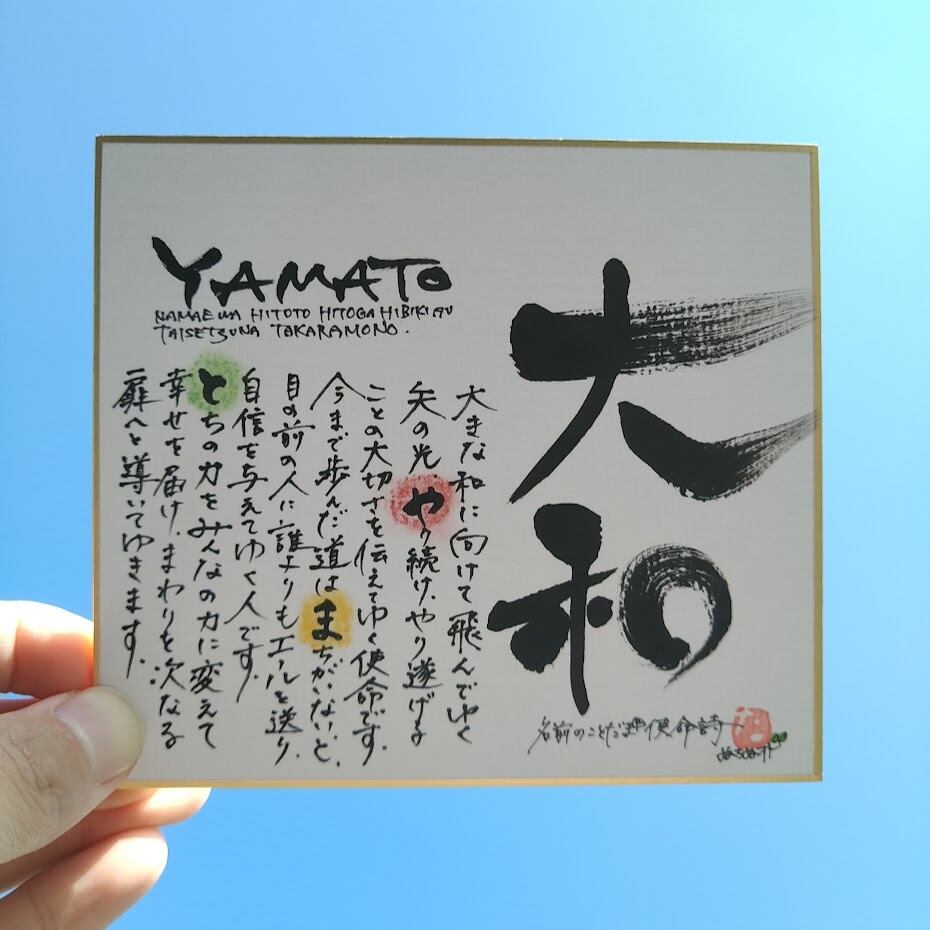 大和
YAMATO
NAMAE WA HITOTO HITOGA HIBIKIAU
TAISETSUNA TAKARAMONO.
大きな和に向けて飛んでゆく
矢の光.やり続け.やり遂げる
ことの大切さを伝えてゆく使命です.
今まで歩んだ道はまちがいない、と.
目の前の人に誰よりもエールを送り.
自信を与えてゆく人です.
とちの力をみんなの力に変えて
幸せを届け.まわりを次なる
扉へと導いてゆきます.
名前のことだま 使命詩